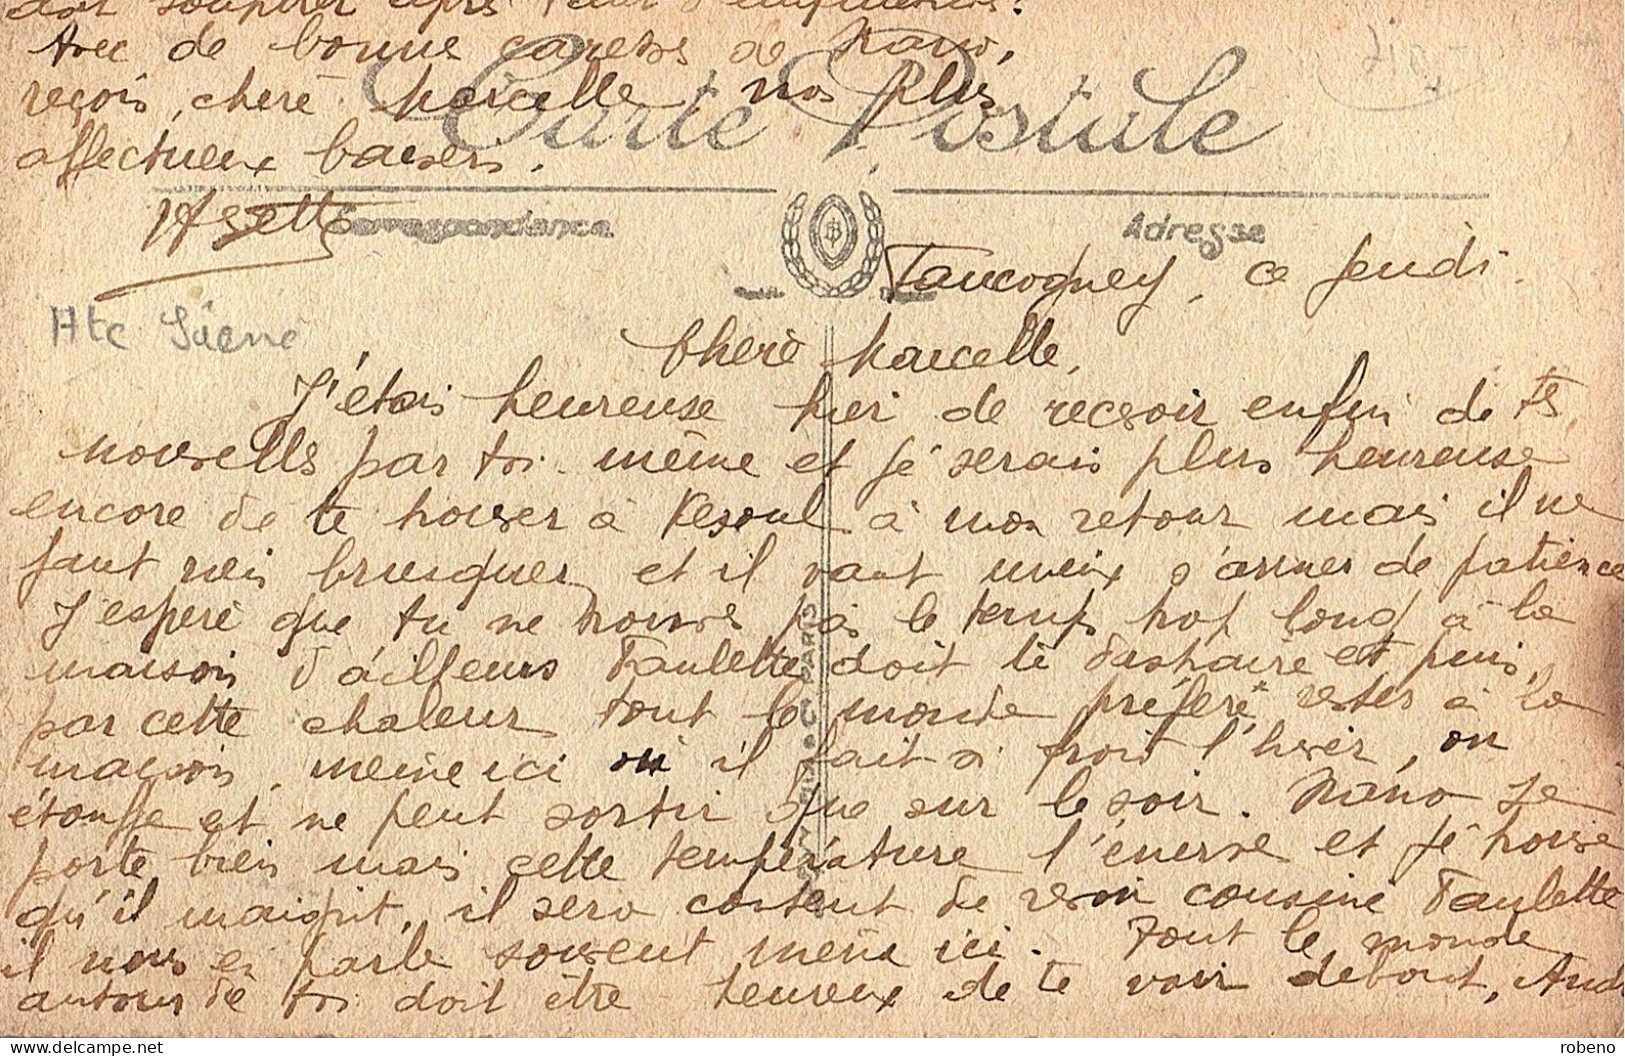 doit soupirer après tant d'emotions.
Avec de bonne caresses de Nano,
reçois, cherè Marcelle, nos plus
affectueux baisers.
Carte Postale
Correspondance
Adresse
Faucogney, ce Jeudi
Hte Sâene
Cherè Marcelle,
J'étais heureuse hier de recevoir enfin de tes
nouvelles par toi même et je serais plus heureuse
encore de te trouver à Vesoul à mon retour mais il ne
faut rien brusquer et il vaut mieux s'armer de patience
J'esperè que tu ne trouves pas le temps trop long à la
maison d'ailleurs Paulette doit te distraire et puis,
par cette chaleur tout le monde préferè rester à la
maison, même ici où il fait si froid l'hiver, on
étouffe et ne peut sortir que sur le soir. Nano se
porte bien mais cette température l'énerve et je trouve
qu'il maigrit, il sera content de revoir cousine Paulette
il nous en parle souvent même ici. Tout le monde
autour de toi doit être heureux de te voir debout, And
PARIS
robeno